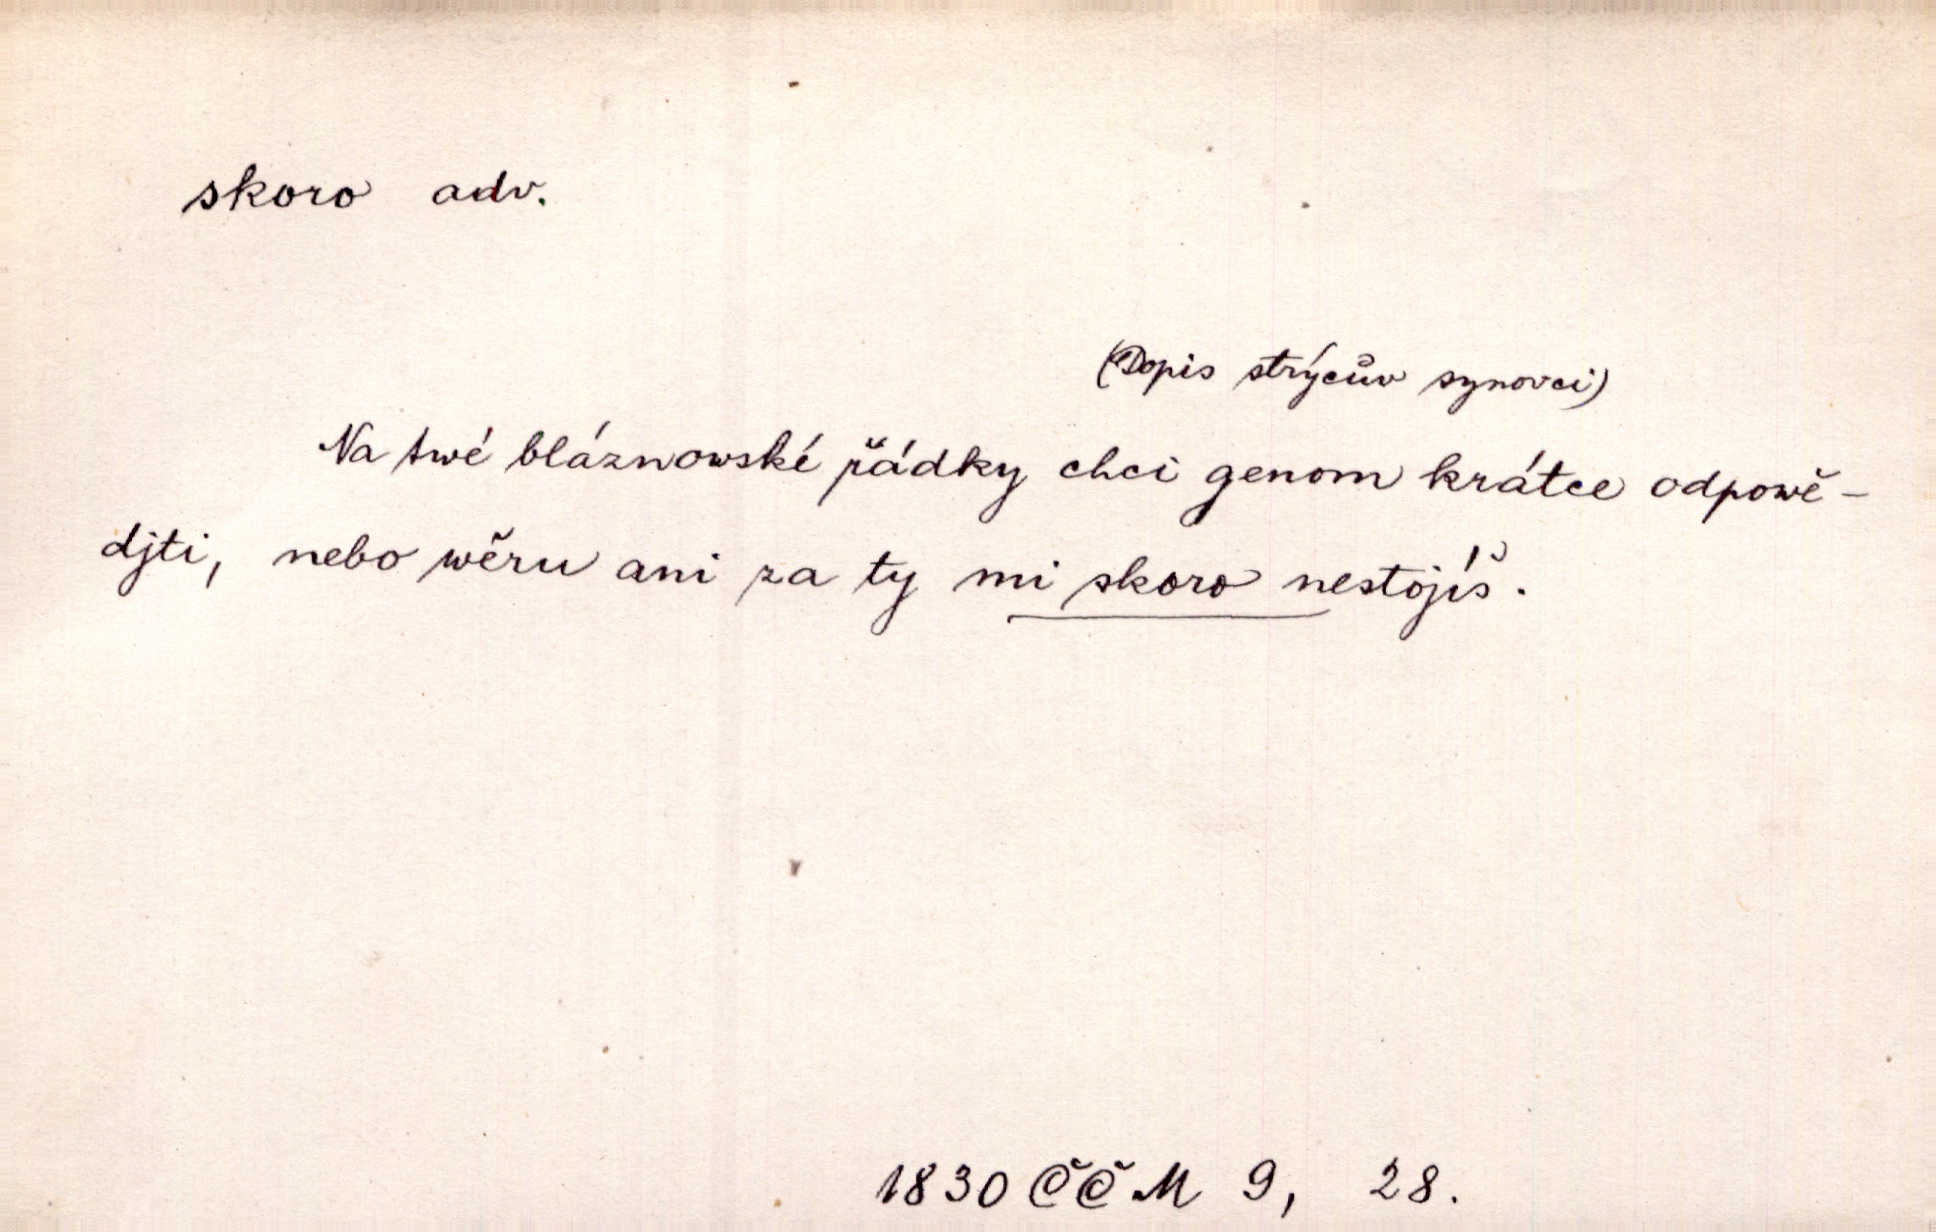 skoro adv.
(Dopis strýcův synovci)
Na twé bláznowské řádky chci genom krátce odpowě-
djti, nebo wěru ani za ty mi skoro nestojíš.
1830 ČČM 9, 28.